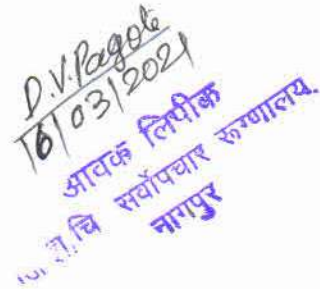 D.V. Pagote
16/03/2021
आवक लिपीक
चि सर्वोपचार रूग्णालय.
नागपुर